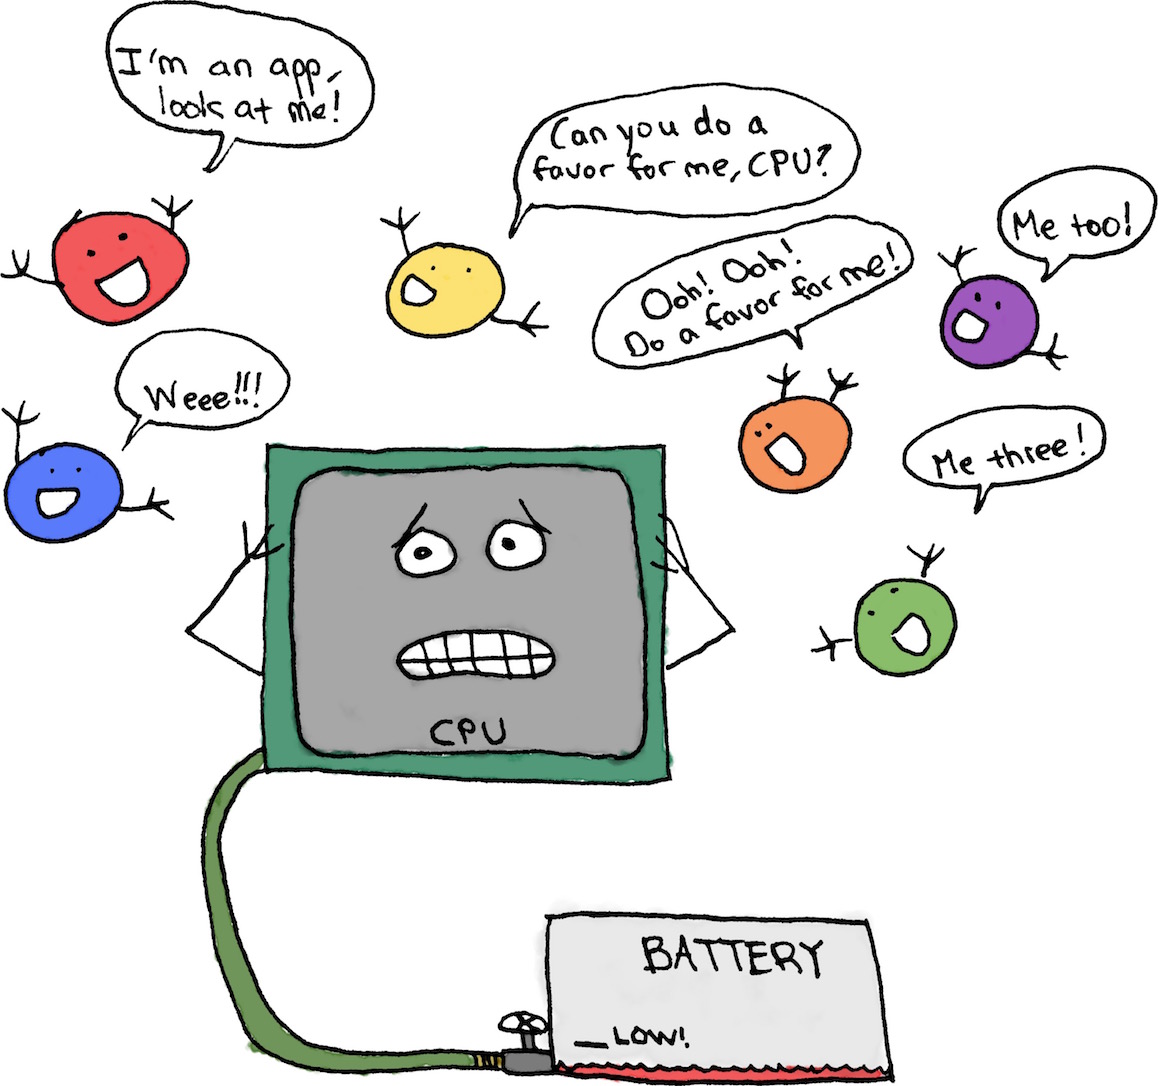 I'm an app,
look at me!
Can you do a
favor for me, CPU?
Me too!
Ooh! Ooh!
Do a favor for me!
Weee!!!
Me three!
CPU
BATTERY
LOW!